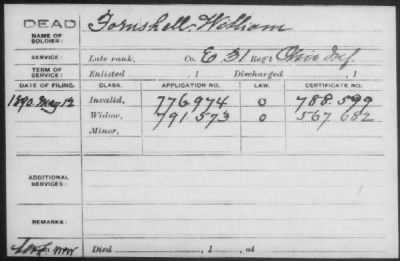 DEAD
NAME OF SOLDIER: Fornshell, William
SERVICE: Late rank, Co. E 31 Reg't Ohio Inf.
TERM OF SERVICE: Enlisted , 1 Discharged , 1
DATE OF FILING. CLASS. APPLICATION NO. LAW. CERTIFICATE NO.
1890. May 12 Invalid, 776.974 O 788.599
Widow, 791.573 O 567.682
Minor,
ADDITIONAL SERVICES:
REMARKS:
Died , 1 , at